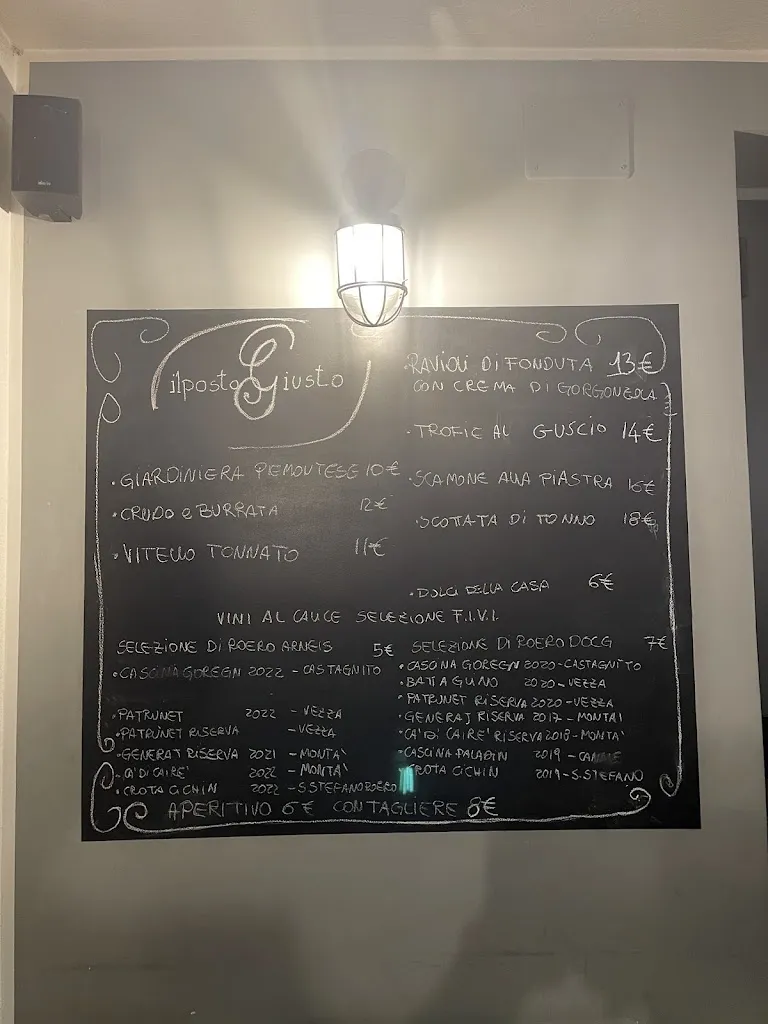 ilposto Giusto
• GIARDINIERA PIEMONTESE 10€
• CRUDO e BURRATA 12€
• VITELLO TONNATO 11€
• RAVIOLI DI FONDUTA 13€
CON CREMA DI GORGONZOLA
• TROFIE AL GUSCIO 14€
• SCAMONE ALLA PIASTRA 16€
• SCOTTATA DI TONNO 18€
• DOLCI DELLA CASA 6€
VINI AL CALICE SELEZIONE F.I.V.I.
SELEZIONE DI ROERO ARNEIS 5€
• CASCINA GOREGN 2022 - CASTAGNITO
• PATRUNET 2022 - VEZZA
• PATRUNET RISERVA - VEZZA
• GENERAJ RISERVA 2021 - MONTA'
• CA' DI CAIRE' 2022 - MONTA'
• CROTA CICHIN 2022 - S. STEFANO ROERO
SELEZIONE DI ROERO DOCG 7€
• CASCINA GOREGN 2020 - CASTAGNITO
• BATTAGLINO 2020 - VEZZA
• PATRUNET RISERVA 2020 - VEZZA
• GENERAJ RISERVA 2017 - MONTA'
• CA' DI CAIRE' RISERVA 2018 - MONTA'
• CASCINA PALADIN 2019 -
• CROTA CICHIN 2019 - S. STEFANO
APERITIVO 6€ CON TAGLIERE 8€